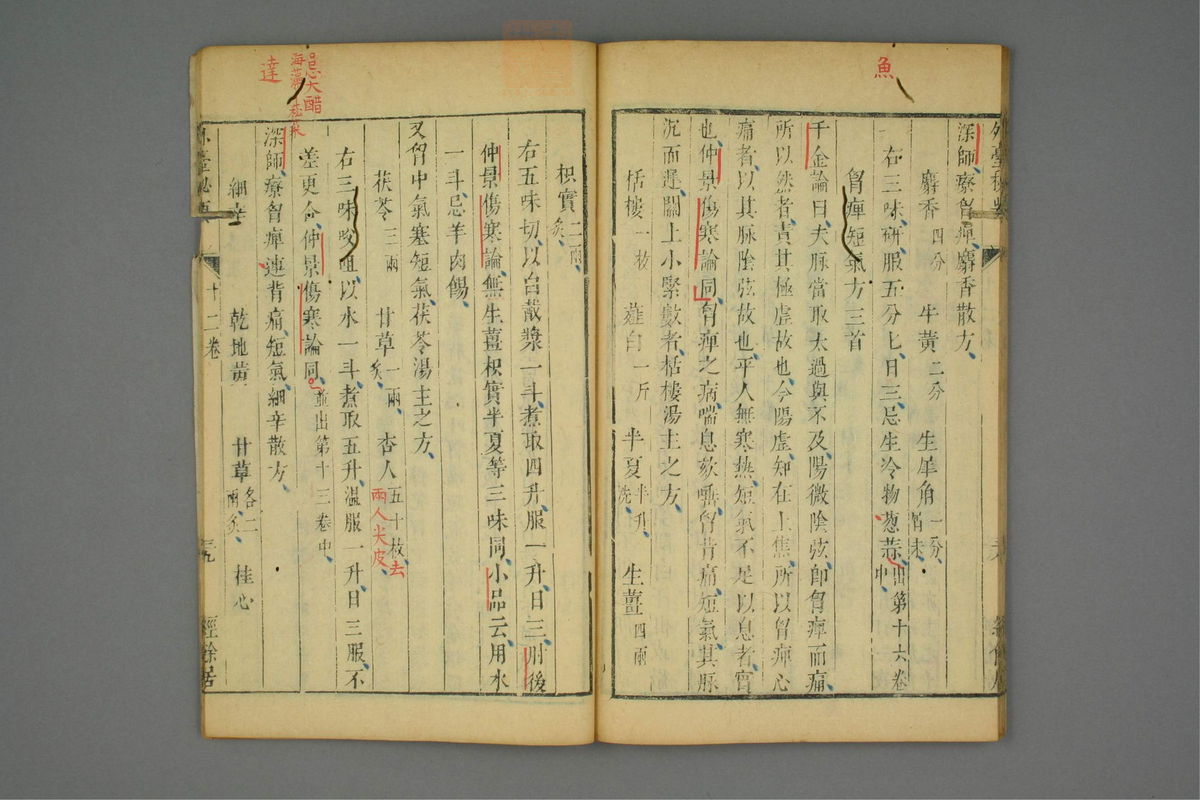 魚
深師療胷痺麝香散方
麝香四分 牛黄二分 生犀角一分屑末
右三味研服五分匕日三忌生冷物葱蒜出第十六卷中
胷痺短氣方三首
千金論曰夫脉當取太過與不及陽微陰弦卽胷痺而痛
所以然者責其極虛故也今陽虛知在上焦所以胷痺心
痛者以其脉陰弦故也平人無寒熱短氣不足以息者實
也仲景傷寒論同胷痺之病喘息欬唾胷背痛短氣其脉
沉而遲關上小緊數者栝樓湯主之方
栝樓一枚 薤白一斤 半夏半升洗 生薑四兩
枳實二兩炙
右五味切以白酨漿一斗煮取四升服一升日三肘後
仲景傷寒論無生薑枳實半夏等三味同小品云用水
一斗忌羊肉餳
又胷中氣塞短氣茯苓湯主之方
茯苓三兩 甘草一兩炙 杏人五十枚去兩人尖皮
右三味㕮咀以水一斗煮取五升温服一升日三服不
差更合仲景傷寒論同並出第十三卷中
深師療胷痺連背痛短氣細辛散方
細辛 乾地黄 甘草各二兩炙 桂心
忌大醋
海藻菘菜
達
外臺秘要 十二卷 經餘居